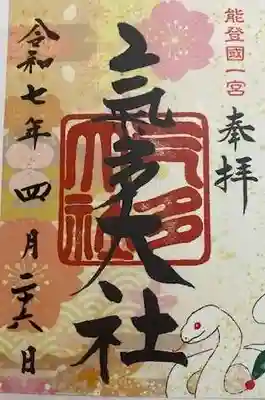 能登國一宮
奉拝
氣多大社
令和七年四月二十八日